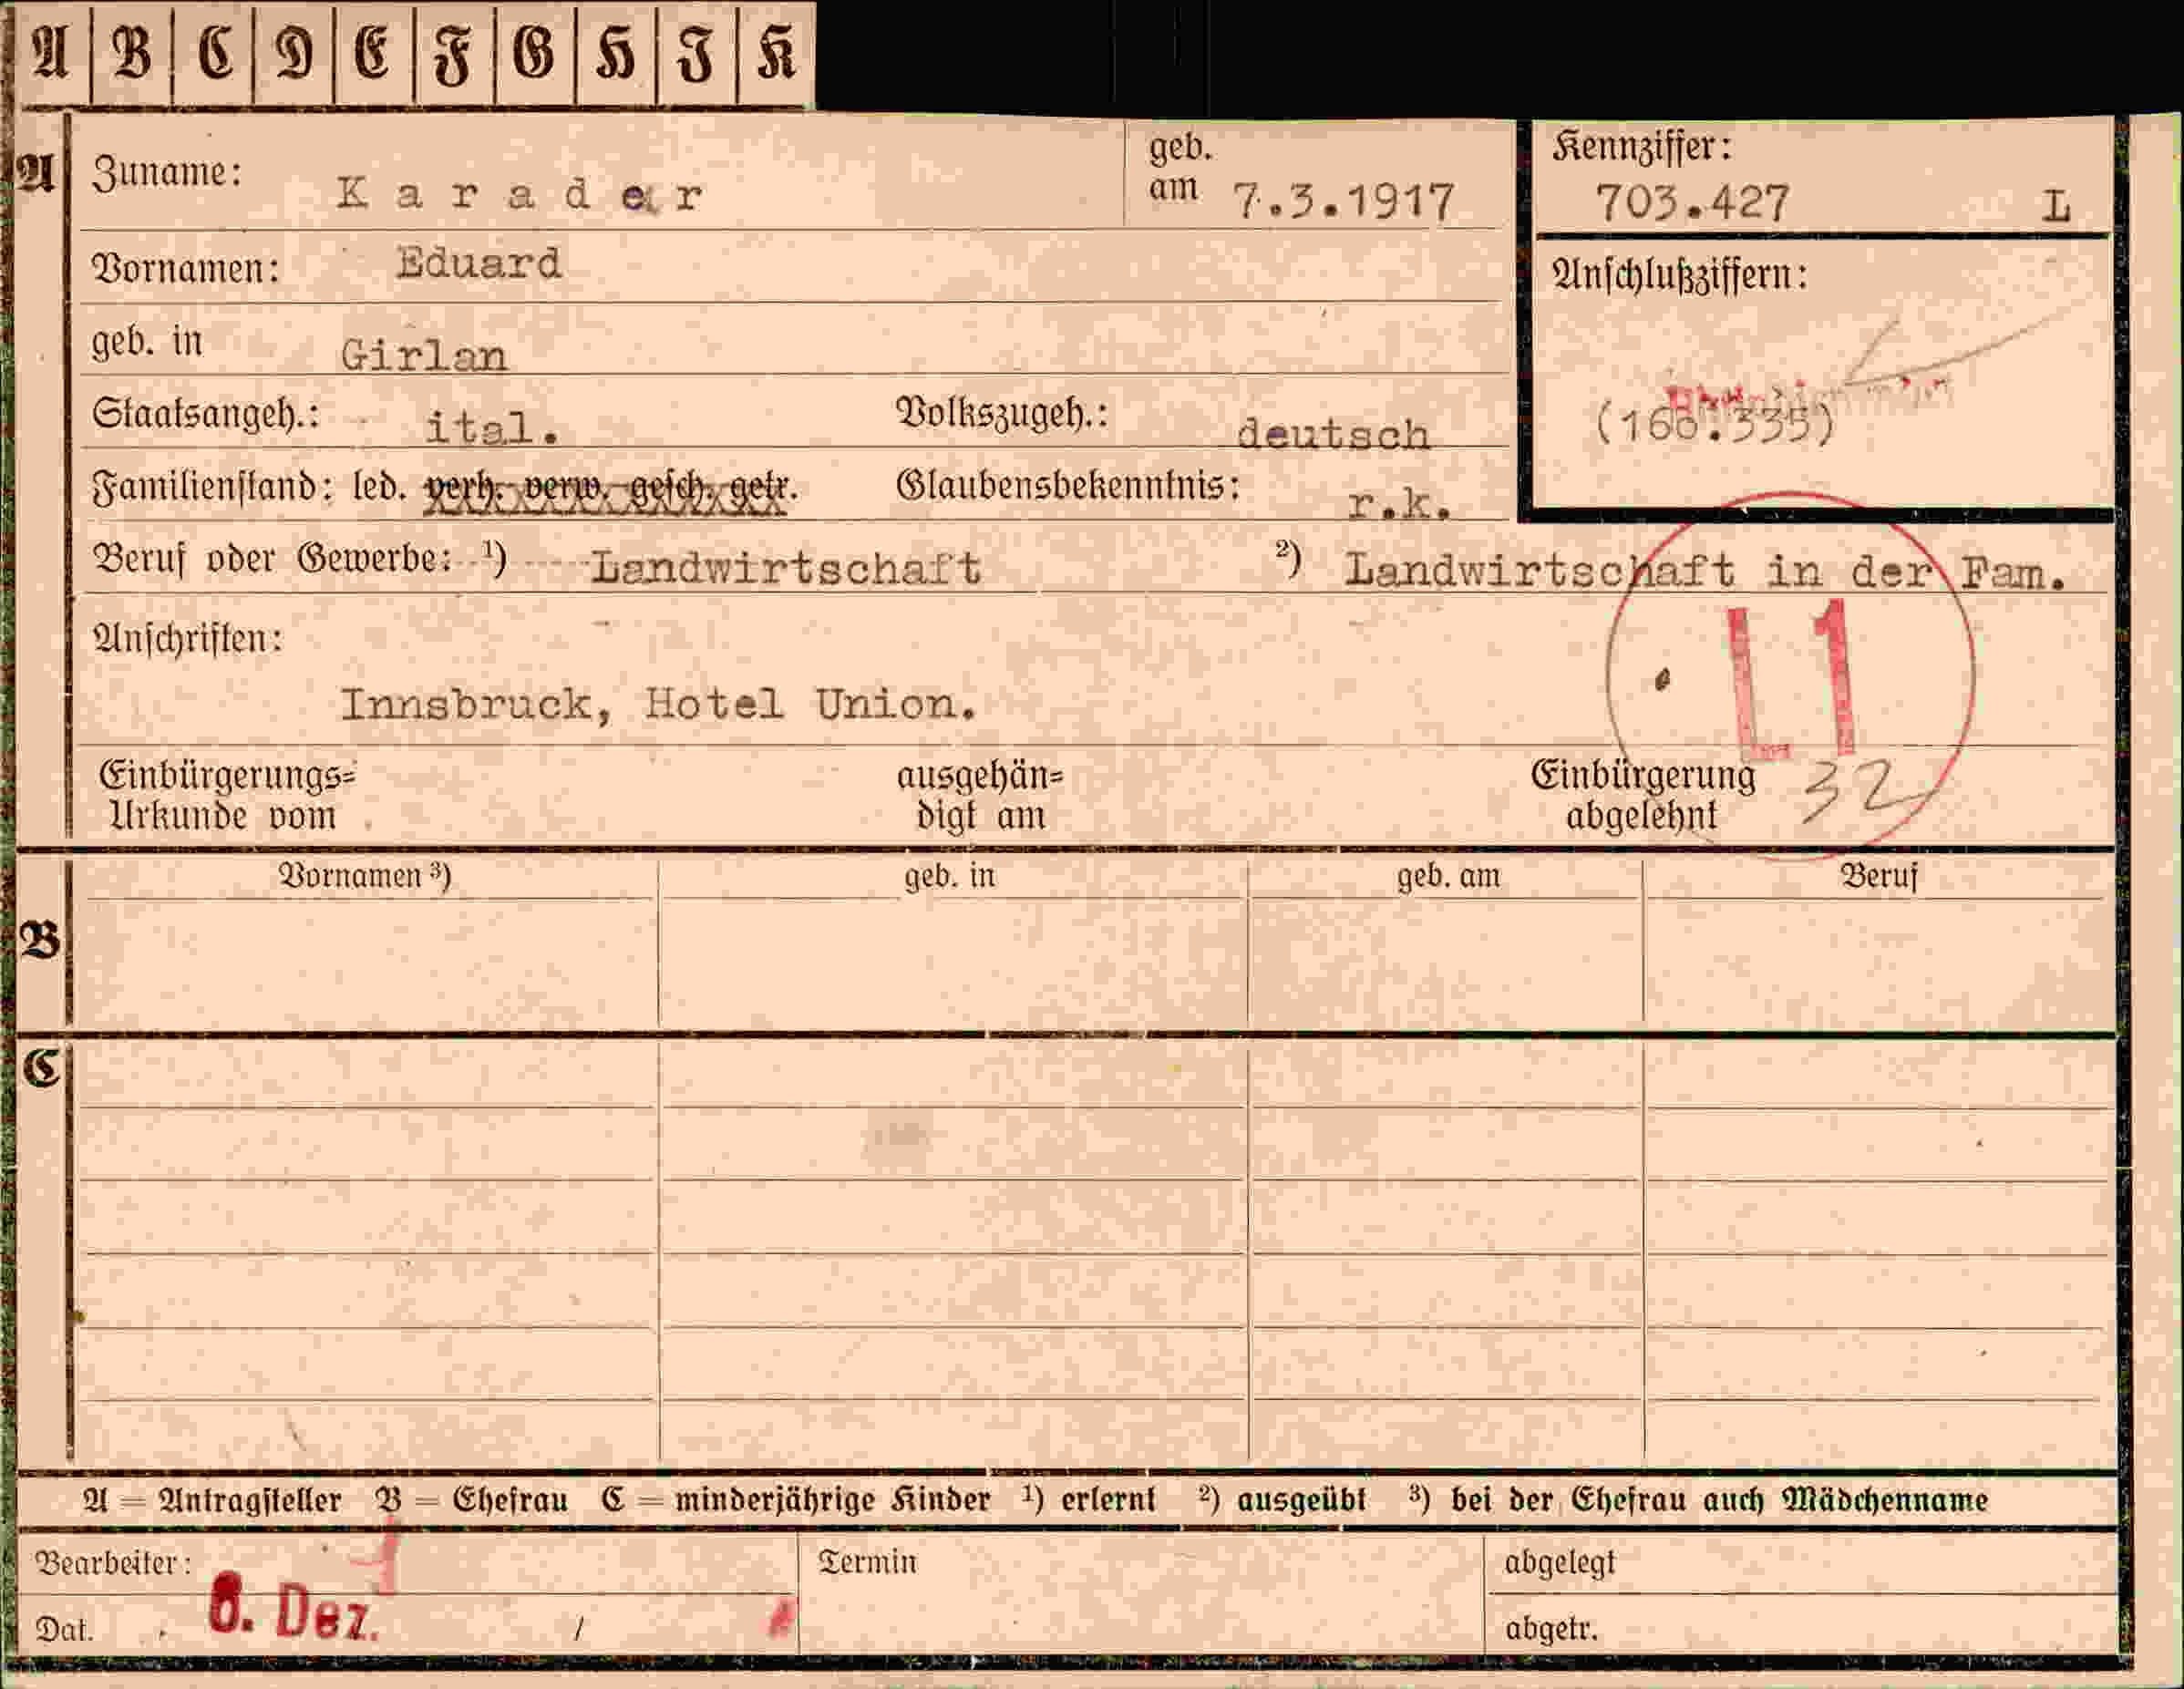 A B C D E F G H J K
A Zuname: Karader geb. am 7.3.1917
Kennziffer: 703.427 L
Vornamen: Eduard
Anschlußziffern:
geb. in Girlan
(168.335)
Staatsangeh.: ital. Volkszugeh.: deutsch
Familienstand: led. verh. verw. gesch. getr. Glaubensbekenntnis: r.k.
Beruf oder Gewerbe: ¹) Landwirtschaft ²) Landwirtschaft in der Fam.
Anschriften:
L1
Innsbruck, Hotel Union.
Einbürgerungs= ausgehän= Einbürgerung 32
Urkunde vom digt am abgelehnt
Vornamen ³) geb. in geb. am Beruf
B
C
A = Antragsteller B = Ehefrau C = minderjährige Kinder ¹) erlernt ²) ausgeübt ³) bei der Ehefrau auch Mädchenname
Bearbeiter: Termin abgelegt
Dat. 6. Dez. / abgetr.